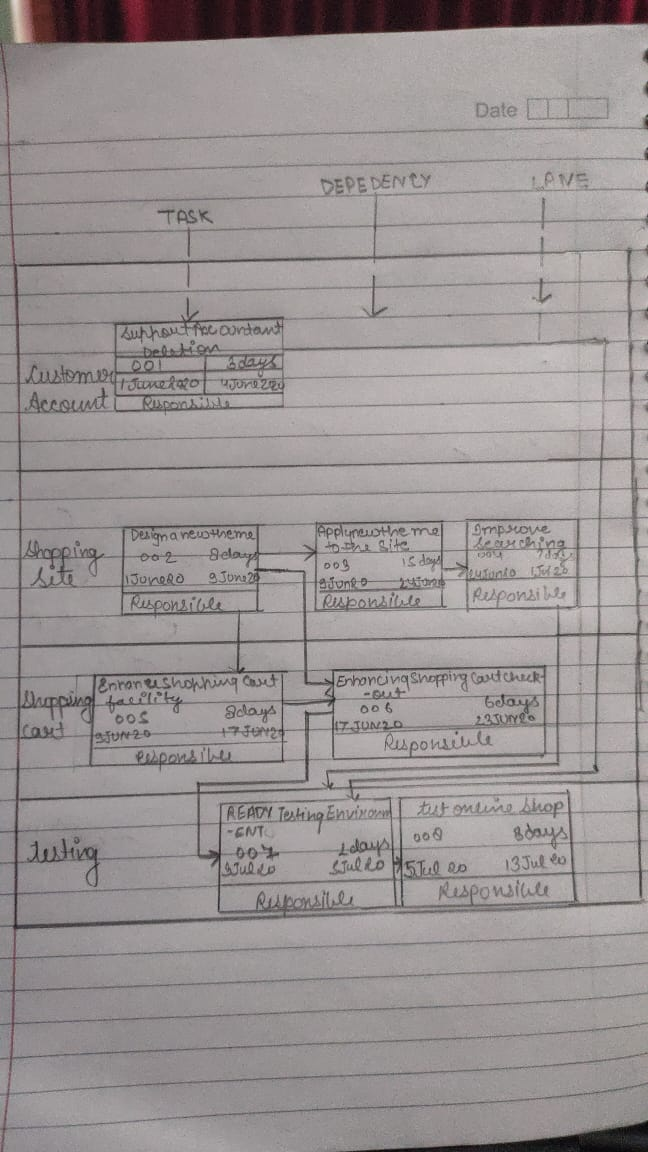 Date
DEPEDENCY
LANE
TASK
Support Accountant
Deletion
001 3days
1June2020 4June2020
Responsible
Customer
Account
Design a new theme
002 8days
1June20 9June20
Responsible
Apply new theme
to the site
003 15days
9June20 24June20
Responsible
Improve
searching
004 7days
24Jun20 1Jul20
Responsible
Shopping
site
Shopping Cart
facility
005 8days
9JUN20 17JUN20
Responsible
Enhancing Shopping Cart Check
-out
006 6days
17JUN20 23JUN20
Responsible
Shopping
cart
READY Testing Environm
-ENT
007 2days
3Jul20 5Jul20
Responsible
online shop
008 8days
5Jul20 13Jul20
Responsible
testing